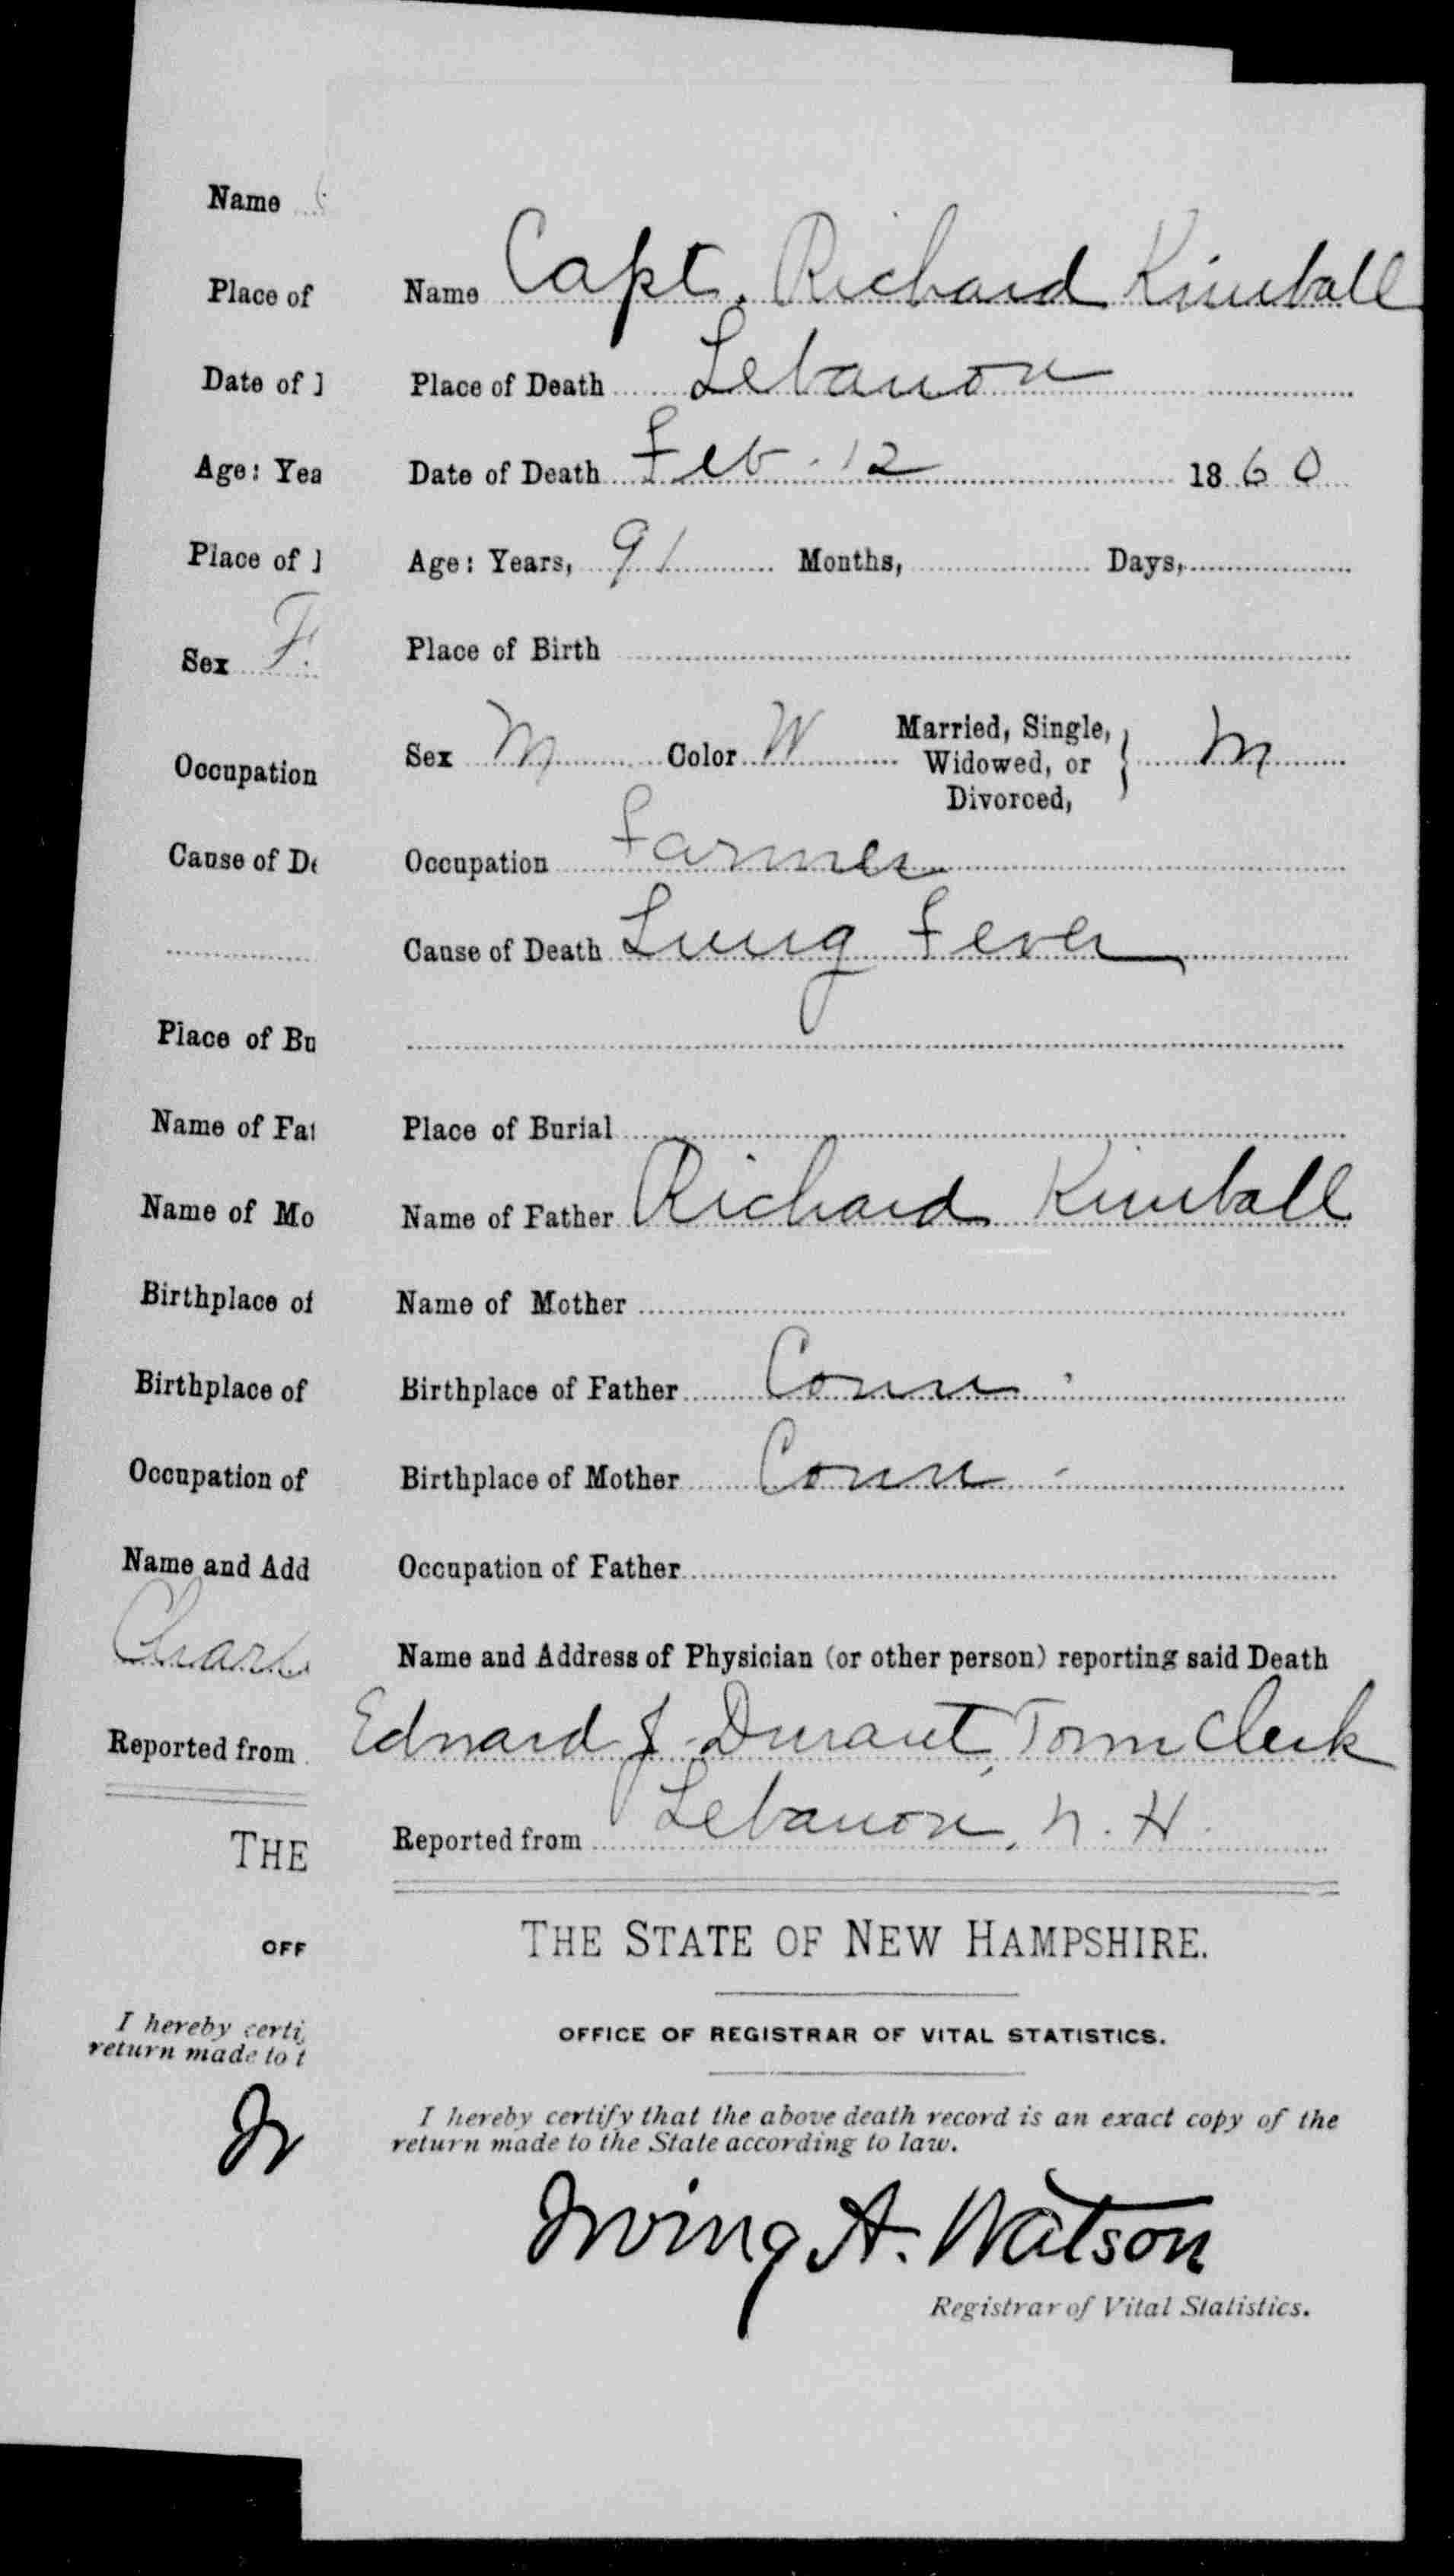 Name
Place of
Date of
Age: Yea
Place of
Sex F.
Occupation
Cause of De
Place of Bu
Name of Fat
Name of Mo
Birthplace of
Birthplace of
Occupation of
Name and Add
Charl
Reported from
THE
OFF
I hereby certi
return made to t
Ir
Name Capt. Richard Kimball
Place of Death Lebanon
Date of Death Feb. 12 1860
Age: Years, 91 Months, Days,
Place of Birth
Sex M Color W Married, Single,
Widowed, or } M
Divorced,
Occupation Farmer
Cause of Death Lung Fever
Place of Burial
Name of Father Richard Kimball
Name of Mother
Birthplace of Father Conn.
Birthplace of Mother Conn.
Occupation of Father
Name and Address of Physician (or other person) reporting said Death
Edward J. Durant, Town Clerk
Reported from Lebanon, N. H.
THE STATE OF NEW HAMPSHIRE.
OFFICE OF REGISTRAR OF VITAL STATISTICS.
I hereby certify that the above death record is an exact copy of the
return made to the State according to law.
Irving A. Watson
Registrar of Vital Statistics.